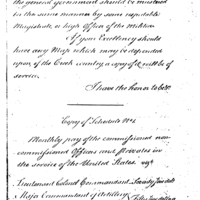 the general government should be mustered
in the same manner by some respectable
Magistrate or high Officer of the Militia
If your Excellency should
have any Map which may be depended
upon of the Creek country a copy of it will be of
service.
I have the honor to be &c
Copy of Schedule No 1
Monthly pay of the commissioned non-
commissioned Officers and Privates in
the service of the United States. viz
Lieutenant Colonel Commandant Seventy five dolls
Major Commandant of Artillery